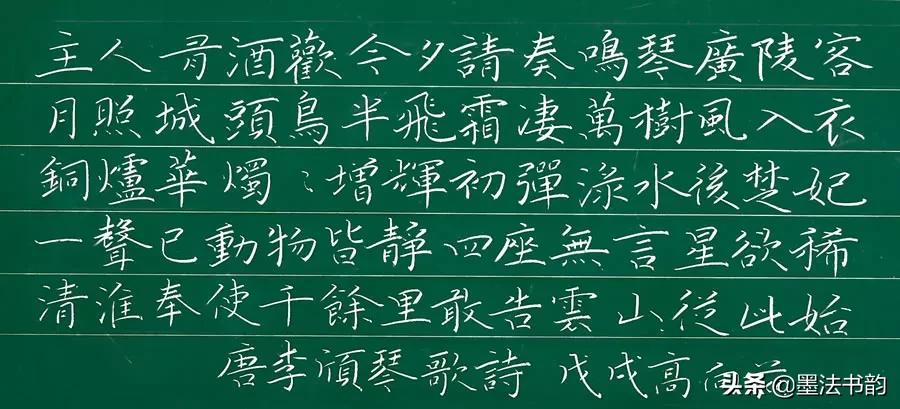 主人有酒歡今夕請奏鳴琴廣陵客
月照城頭鳥半飛霜凄萬樹風入衣
銅爐華燭〻增輝初彈淥水後楚妃
一聲已動物皆靜四座無言星欲稀
清淮奉使千餘里敢告雲山從此始
唐李頎琴歌詩 戊戌高
头条@墨法书韵